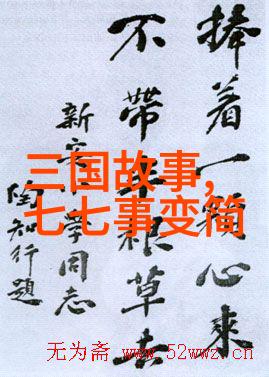 捧着一颗心来
不带半根草去
新安小学同志
陶知行题
三国故事,
七七事变简
无为斋 www.52wwz.cn